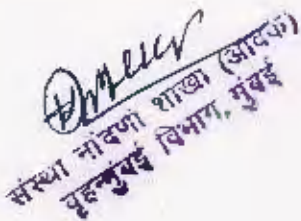 संस्था नोंदणी शाखा (आवक)
बृहन्मुंबई विभाग, मुंबई